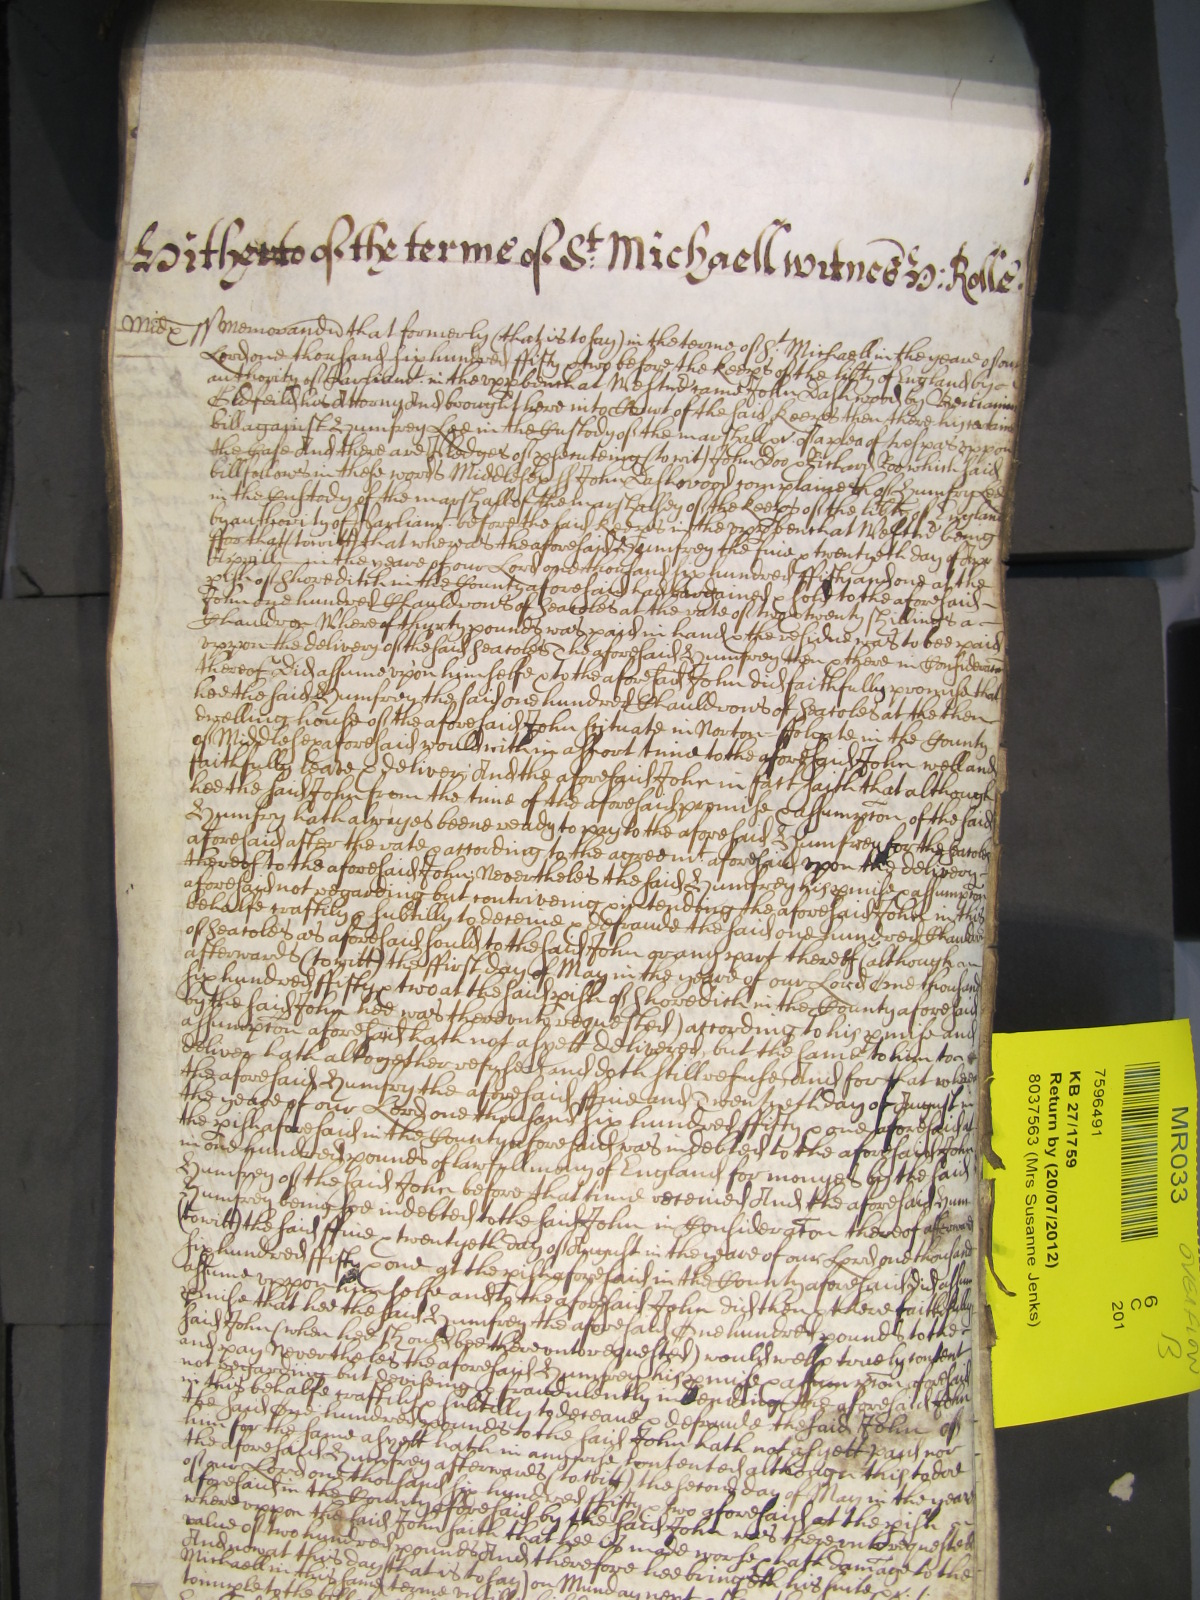 Hitherto of the terme of St. Michaell witnes H: Rolle.
Midx ss Memorand that formerly (that is to say) in the terme of St. Michaell in the yeare of our
Lord one thousand six hundred ffifty & two before the keeps of the libty of England by
authority of Parliamt. in the upp bench at Westmr came John Dashwood by Beniamin
Oldfeild his Attorny And brought here into Court of the said keeps then there his certaine
bill against Humfrey Lee in the Custody of the marshall &c of a plea of trespas uppon
the Case And there are Pledges of prosecuteing (to wit) John Doo & Richard Roo which said
bill follows in these words Middlesex ss John Dashwood complaineth of Humfry Lee
in the Custody of the marshall of the marshallsey of the keeps of the libty of England
by authority of Parliamt. before the said keeps in the upp bench at Westmr being
ffor that (to witt) that whereas the aforesaid Humfrey the five & twentyeth day of
Aprill in the yeare of our Lord one thousand six hundred ffifty and one at the
pish of Shoreditch in the County aforesaid had bargained & sold to the aforesaid
John one hundred Chauldrons of Seacoles at the rate of two & twenty shillings a
Chauldron Whereof thirty pounds was paid in hand & the residue was to bee paid
uppon the delivery of the said Seacoles The aforesaid Humfrey then & there in Consideracon
thereof did assume upon himselfe & to the aforesaid John did faithfully promise that
hee the said Humfrey the said one hundred Chauldrons of Seacoles at the then
dwelling house of the aforesaid John scituate in Norton ffolgate in the County
of Middlesex aforesaid would within a short time to the aforesaid John well and
faithfully leave & deliver; And the aforesaid John in fact saith that although
hee the said John from the time of the aforesaid promise & assumpcon of the said
Humfry hath alwayes beene ready to pay to the aforesaid Humfrey for the Seacoles
aforesaid after the rate & according to the agreemt aforesaid upon the delivery
thereof to the aforesaid John; Nevertheles the said Humfrey his pmise & assumpcon
aforesaid not regarding but contriveing & intending the aforesaid John in this
behalfe craftily & subtilly to deceive & defraude the said one hundred Chauldrons
of Seacoles as aforesaid sould to the said John or any part thereof (although
afterwards (to witt) the ffirst day of May in the yeare of our Lord One thousand
six hundred ffifty & two at the said pish of Shoreditch in the County aforesaid
by the said John hee was thereunto requested) according to his pmise and
assumpcon aforesaid hath not as yett delivered, but the same to him to
deliver hath altogether refused and doth still refuse, And for that whereas
the aforesaid Humfry the aforesaid ffive and Twentyeth day of August in
the yeare of our Lord one thousand six hundred ffifty & one aforesaid at
the pish aforesaid in the County aforesaid was indebted to the aforesaid John
in one hundred pounds of lawfull mony of England for monyes by the said
Humfrey of the said John before that time received And the aforesaid
Humfrey being soe indebted to the said John in Consideracon thereof afterwards
(to witt) the said ffive & twentyeth day of August in the yeare of our Lord one thousand
six hundred ffifty & one at the pish aforesaid in the County aforesaid did
assume uppon himselfe and to the aforesaid John did then & there faithfully
pmise that hee the said Humfrey the aforesaid One hundred pounds to the
said John (when hee should bee thereunto requested) would well & truely content
and pay Nevertheles the aforesaid Humfrey his pmise & assumpcon aforesaid
not regarding but devising & fraudulently intending the aforesaid John
in this behalfe craftily & subtilly to deceave & defraude the said John of
the said One hundred pounds to the said John hath not as yett paid nor
him for the same as yett hath in any wise contented although thereto
the aforesaid Humfrey afterwards (to witt) the second day of May in the yeare
of our Lord one thousand six hundred ffifty & two aforesaid at the pish
aforesaid in the County aforesaid by the said John was thereunto requested
whereuppon the said John saith that hee is made worse & hath damage to the
value of two hundred pounds And therefore hee bringeth his suite &c:
And now at this day (that is to say) on Munday next
Michaell in this same terme untill
to imple to the bill
7596491
KB 27/1759
Return by (20/07/2012)
8037563 (Mrs Susanne Jenks)
MR033
6
C
201
overflow
B